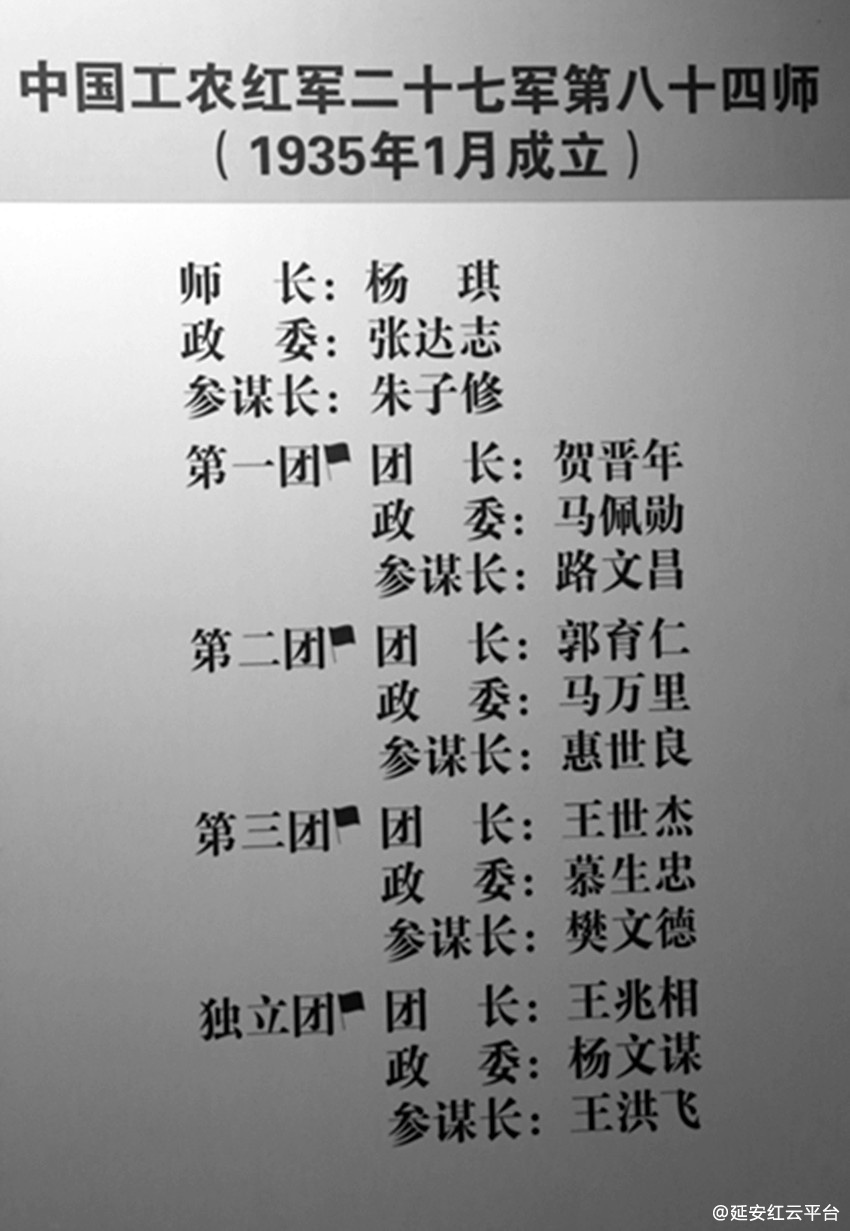 中国工农红军二十七军第八十四师
（1935年1月成立）
师　长：杨　琪
政　委：张达志
参谋长：朱子修
第一团 团　长：贺晋年
政　委：马佩勋
参谋长：路文昌
第二团 团　长：郭育仁
政　委：马万里
参谋长：惠世良
第三团 团　长：王世杰
政　委：慕生忠
参谋长：樊文德
独立团 团　长：王兆相
政　委：杨文谋
参谋长：王洪飞
@延安红云平台